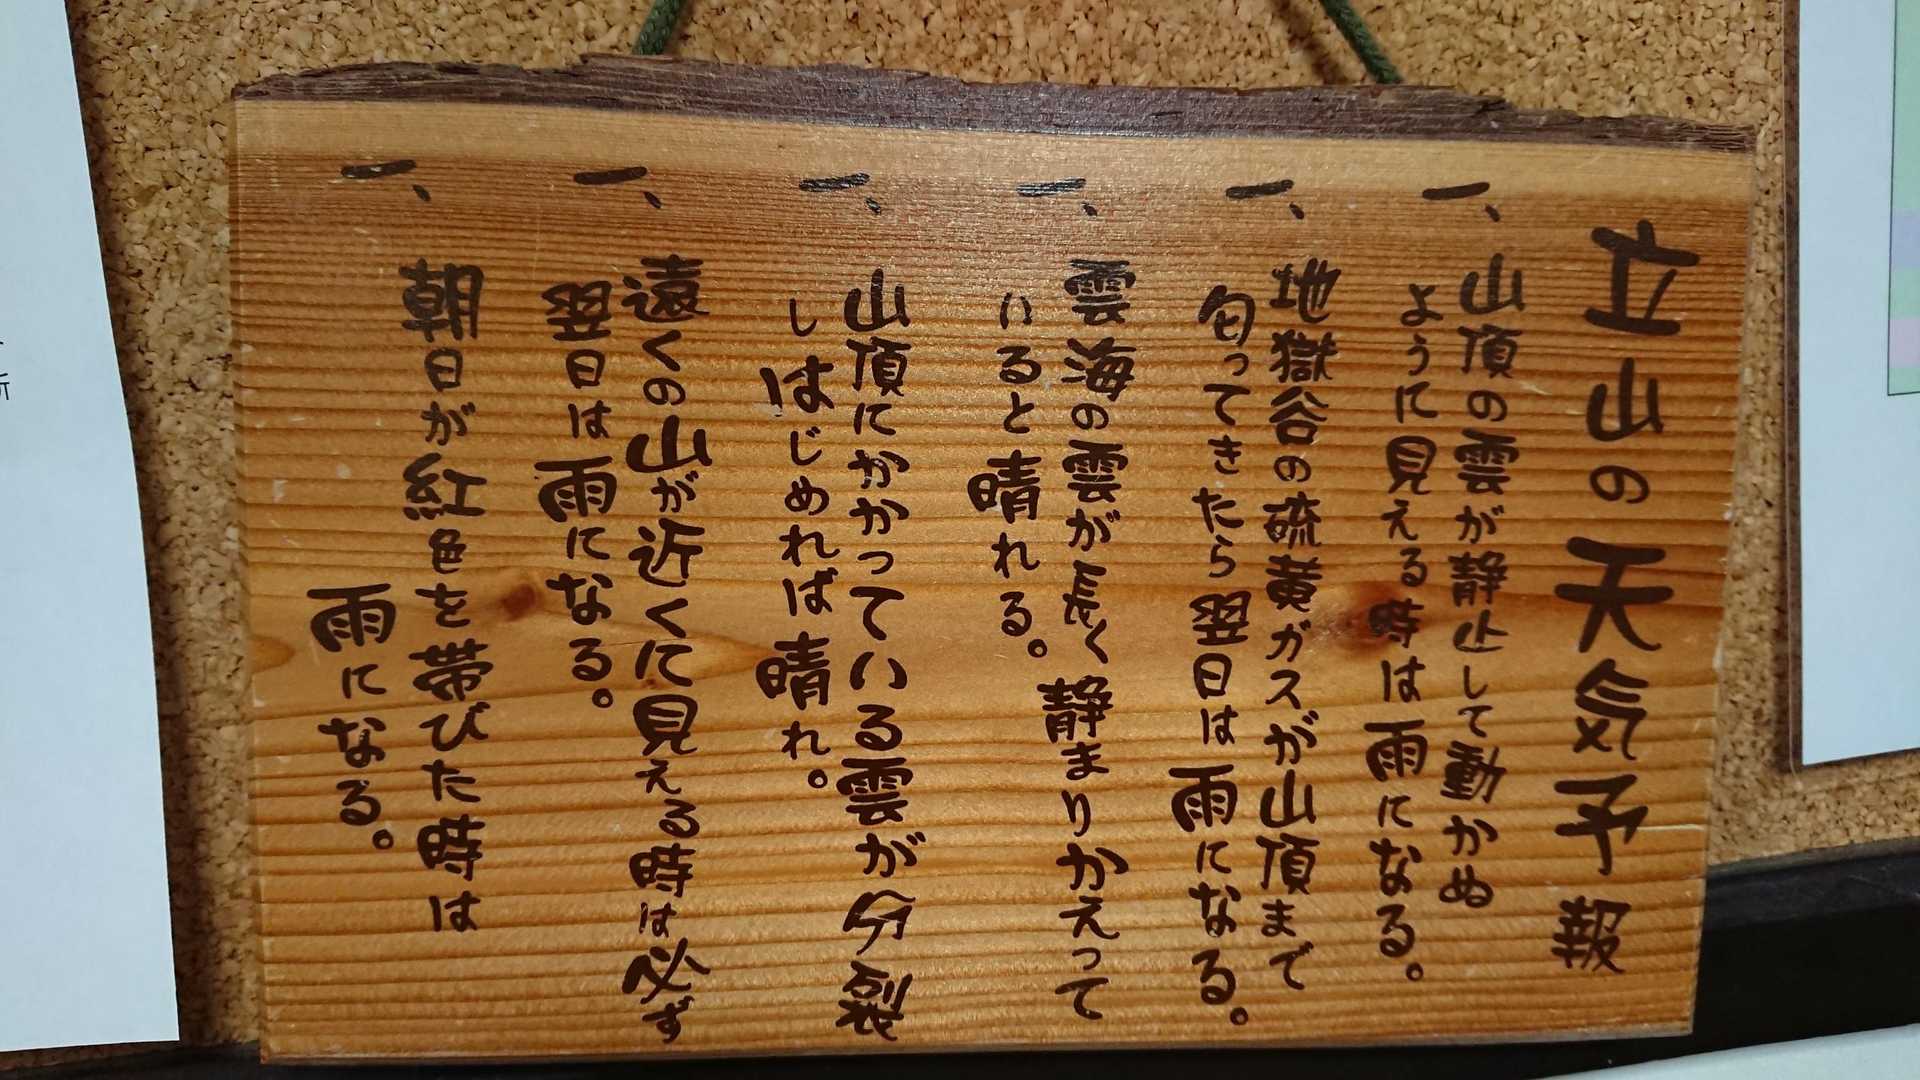 立山の天気予報
一、山頂の雲が静止して動かぬ
ように見える時は雨になる。
一、地獄谷の硫黄ガスが山頂まで
匂ってきたら翌日は雨になる。
一、雲海の雲が長く静まりかえって
いると晴れる。
一、山頂にかかっている雲が分裂
しはじめれば晴れ。
一、遠くの山が近くに見える時は必ず
翌日は雨になる。
一、朝日が紅色を帯びた時は
雨になる。